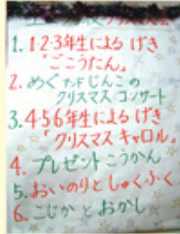 クリスマス会
1. 1・2・3年生による げき
「ごこうたん」
2. めぐアンドじんこの
クリスマス コンサート
3. 4・5・6年生による げき
「クリスマス キャロル」
4. プレゼントこうかん
5. おいのりとしゅくふく
6. ごじかとおかし